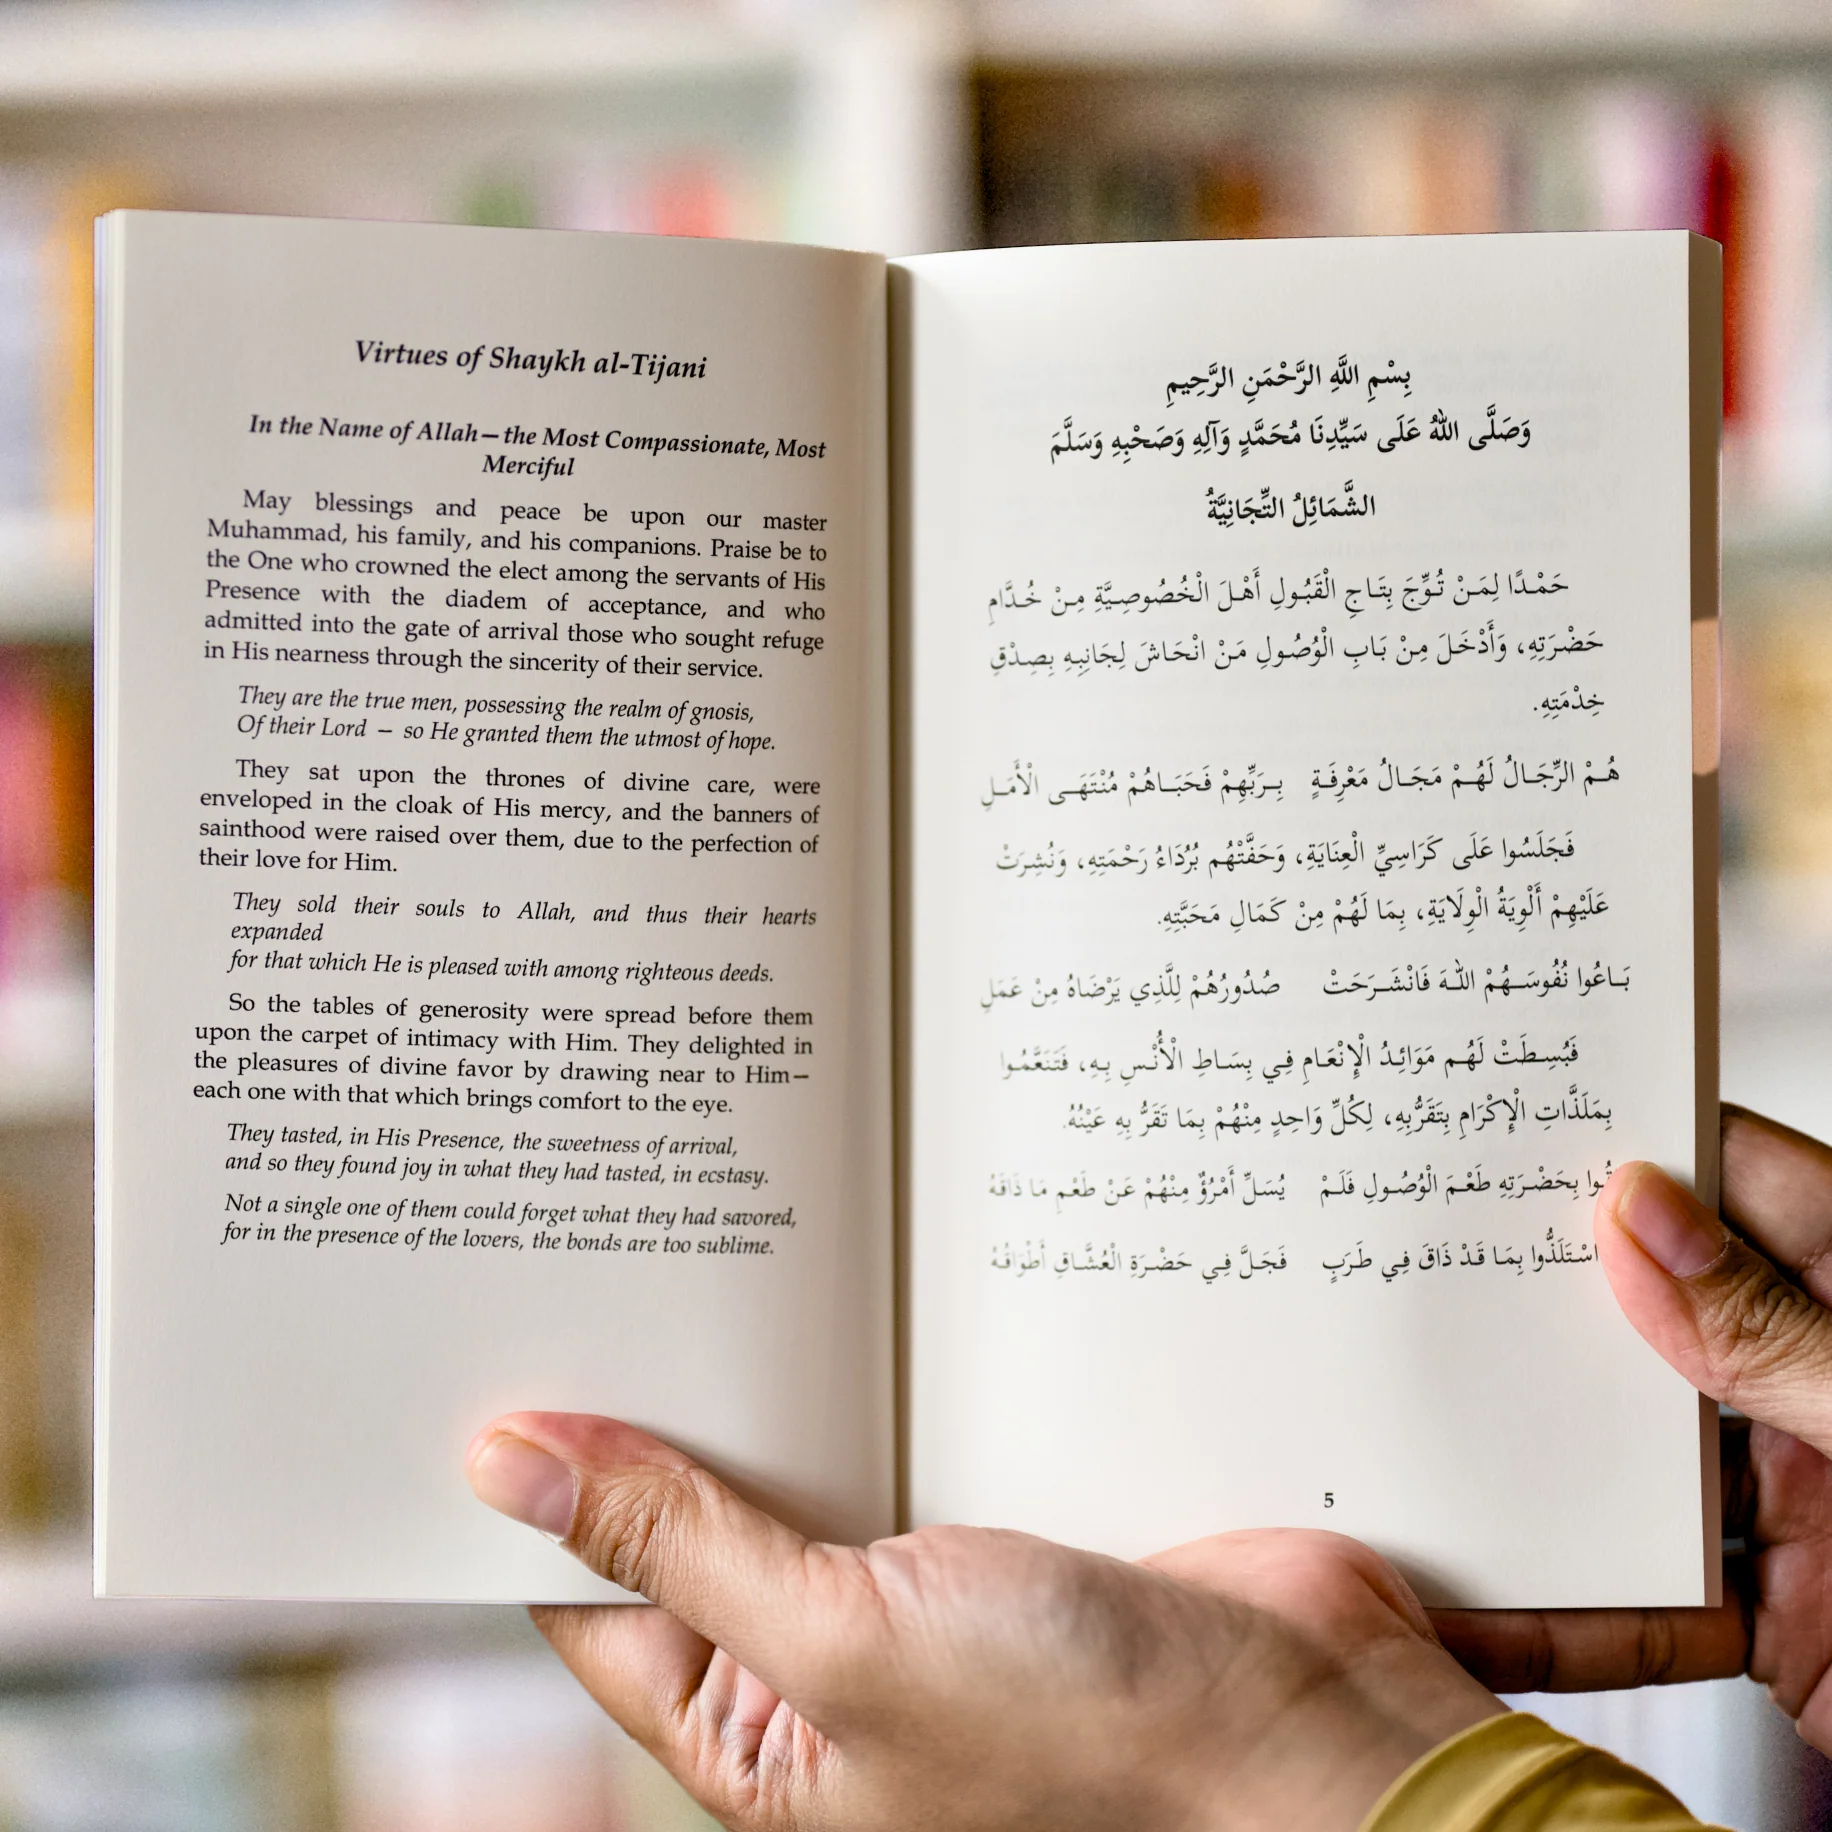 Virtues of Shaykh al-Tijani
In the Name of Allah—the Most Compassionate, Most
Merciful
May blessings and peace be upon our master
Muhammad, his family, and his companions. Praise be to
the One who crowned the elect among the servants of His
Presence with the diadem of acceptance, and who
admitted into the gate of arrival those who sought refuge
in His nearness through the sincerity of their service.
They are the true men, possessing the realm of gnosis,
Of their Lord — so He granted them the utmost of hope.
They sat upon the thrones of divine care, were
enveloped in the cloak of His mercy, and the banners of
sainthood were raised over them, due to the perfection of
their love for Him.
They sold their souls to Allah, and thus their hearts
expanded
for that which He is pleased with among righteous deeds.
So the tables of generosity were spread before them
upon the carpet of intimacy with Him. They delighted in
the pleasures of divine favor by drawing near to Him—
each one with that which brings comfort to the eye.
They tasted, in His Presence, the sweetness of arrival,
and so they found joy in what they had tasted, in ecstasy.
Not a single one of them could forget what they had savored,
for in the presence of the lovers, the bonds are too sublime.
بِسْمِ اللَّهِ الرَّحْمَنِ الرَّحِيمِ
وَصَلَّى اللهُ عَلَى سَيِّدِنَا مُحَمَّدٍ وَآلِهِ وَصَحْبِهِ وَسَلَّمَ
الشَّمَائِلُ التِّجَانِيَّةُ
حَمْدًا لِمَنْ تُوِّجَ بِتَاجِ الْقَبُولِ أَهْلَ الْخُصُوصِيَّةِ مِنْ خُدَّامِ
حَضْرَتِهِ، وَأَدْخَلَ مِنْ بَابِ الْوُصُولِ مَنْ انْحَاشَ لِجَانِبِهِ بِصِدْقِ
خِدْمَتِهِ.
هُمْ الرِّجَالُ لَهُمْ مَجَالُ مَعْرِفَةٍ بِرَبِّهِمْ فَحَبَاهُمْ مُنْتَهَى الْأَمَلِ
فَجَلَسُوا عَلَى كَرَاسِيِّ الْعِنَايَةِ، وَحَفَّتْهُم بُرْدَاءُ رَحْمَتِهِ، وَنُشِرَتْ
عَلَيْهِمْ أَلْوِيَةُ الْوِلَايَةِ، بِمَا لَهُمْ مِنْ كَمَالِ مَحَبَّتِهِ.
بَاعُوا نُفُوسَهُمْ اللهَ فَانْشَرَحَتْ صُدُورُهُمْ لِلَّذِي يَرْضَاهُ مِنْ عَمَلِ
فَبُسِطَتْ لَهُم مَوَائِدُ الْإِنْعَامِ فِي بِسَاطِ الْأُنْسِ بِهِ، فَتَنَعَّمُوا
بِمَلَذَّاتِ الْإِكْرَامِ بِتَقَرُّبِهِ، لِكُلِّ وَاحِدٍ مِنْهُمْ بِمَا تَقَرُّ بِهِ عَيْنُهُ.
بِحَضْرَتِهِ طَعْمَ الْوُصُولِ فَلَمْ يُسَلِّ أَمْرُؤٌ مِنْهُمْ عَنْ طَعْمِ مَا ذَاقَهُ
اسْتَلَذُّوا بِمَا قَدْ ذَاقَ فِي طَرَبٍ فَجَلَّ فِي حَضْرَةِ الْعُشَّاقِ أَطْوَاقُهُ
5